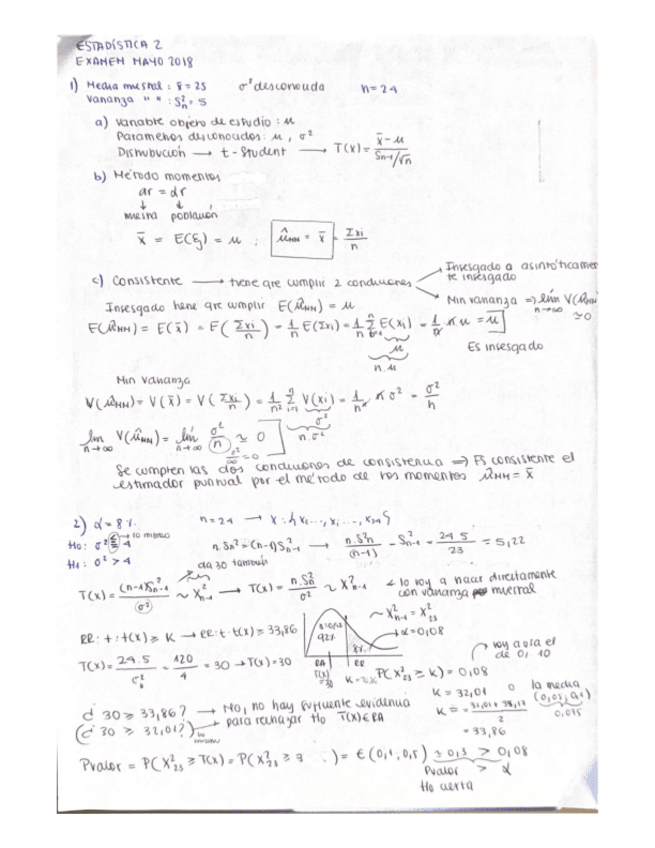 ESTADÍSTICA 2
EXAMEN MAYO 2018
1) Media muestral : x̄ = 25   σ² desconocida   n = 24
Varianza " " : S²n = 5
a) Variable objeto de estudio : μ
Parametros desconocidos : μ , σ²
Distribución → t-Student → T(x) = (x̄ - μ) / (Sn-1/√n)
b) Método momentos
ar = αr
↓ ↓
muestra población
x̄ = E(ξ) = μ ; μ̂MM = x̄ = Σxi / n
c) Consistente → tiene que cumplir 2 condiciones
Insesgado o asintóticamente insesgado
Min varianza ⇒ lím n→∞ V(μ̂MM) ≃ 0
Insesgado tiene que cumplir E(μ̂MM) = μ
E(μ̂MM) = E(x̄) = E(Σxi/n) = 1/n E(Σxi) = 1/n Σ E(xi) = 1/n n μ = μ
μ
n.μ
Es insesgado
Min varianza
V(μ̂MM) = V(x̄) = V(Σxi/n) = 1/n² Σ V(xi) = 1/n² n σ² = σ²/n
σ²
n.σ²
lím n→∞ V(μ̂MM) = lím n→∞ σ²/n ≃ 0
σ²/∞ = 0
Se cumplen las dos condiciones de consistencia ⇒ Es consistente el
estimador puntual por el método de los momentos μ̂MM = x̄
2) α = 8 %   n = 24 → X : { x1,..., xi,..., x24 }
H0: σ² ≤ 4 → lo mismo
H1: σ² > 4
n.Sn² = (n-1)S²n-1 → n.S²n/(n-1) = S²n-1 = 24·5/23 = 5,22
da 30 también
T(x) = (n-1)S²n-1/σ² ~ X²n-1 → T(x) = n.S²n/σ² ~ X²n-1
lo voy a hacer directamente
con varianza muestral
RR: t : t(x) ≥ K → RR: t : t(x) ≥ 33,86
92%
8%
α = 0,08
~ X²n-1 = X²23
RA RR
T(x) = 30
T(x) = 24·5/σ²0 = 120/4 = 30 → T(x) = 30
P(X²23 ≥ K) = 0,08
voy a ola el
de 0,10
K = 32,01 o la media
(0,05, 0,1)
0,075
= 33,86
¿ 30 ≥ 33,86 ? → No, no hay suficiente evidencia
para rechazar H0 T(x) ∈ RA
(¿ 30 ≥ 32,01 ?) → lo mismo
Pvalor = P(X²23 ≥ T(x)) = P(X²23 ≥ 3 ) = ∈ (0,1, 0,5) ≃ 0,3 > 0,08
Pvalor > α
H0 cierta